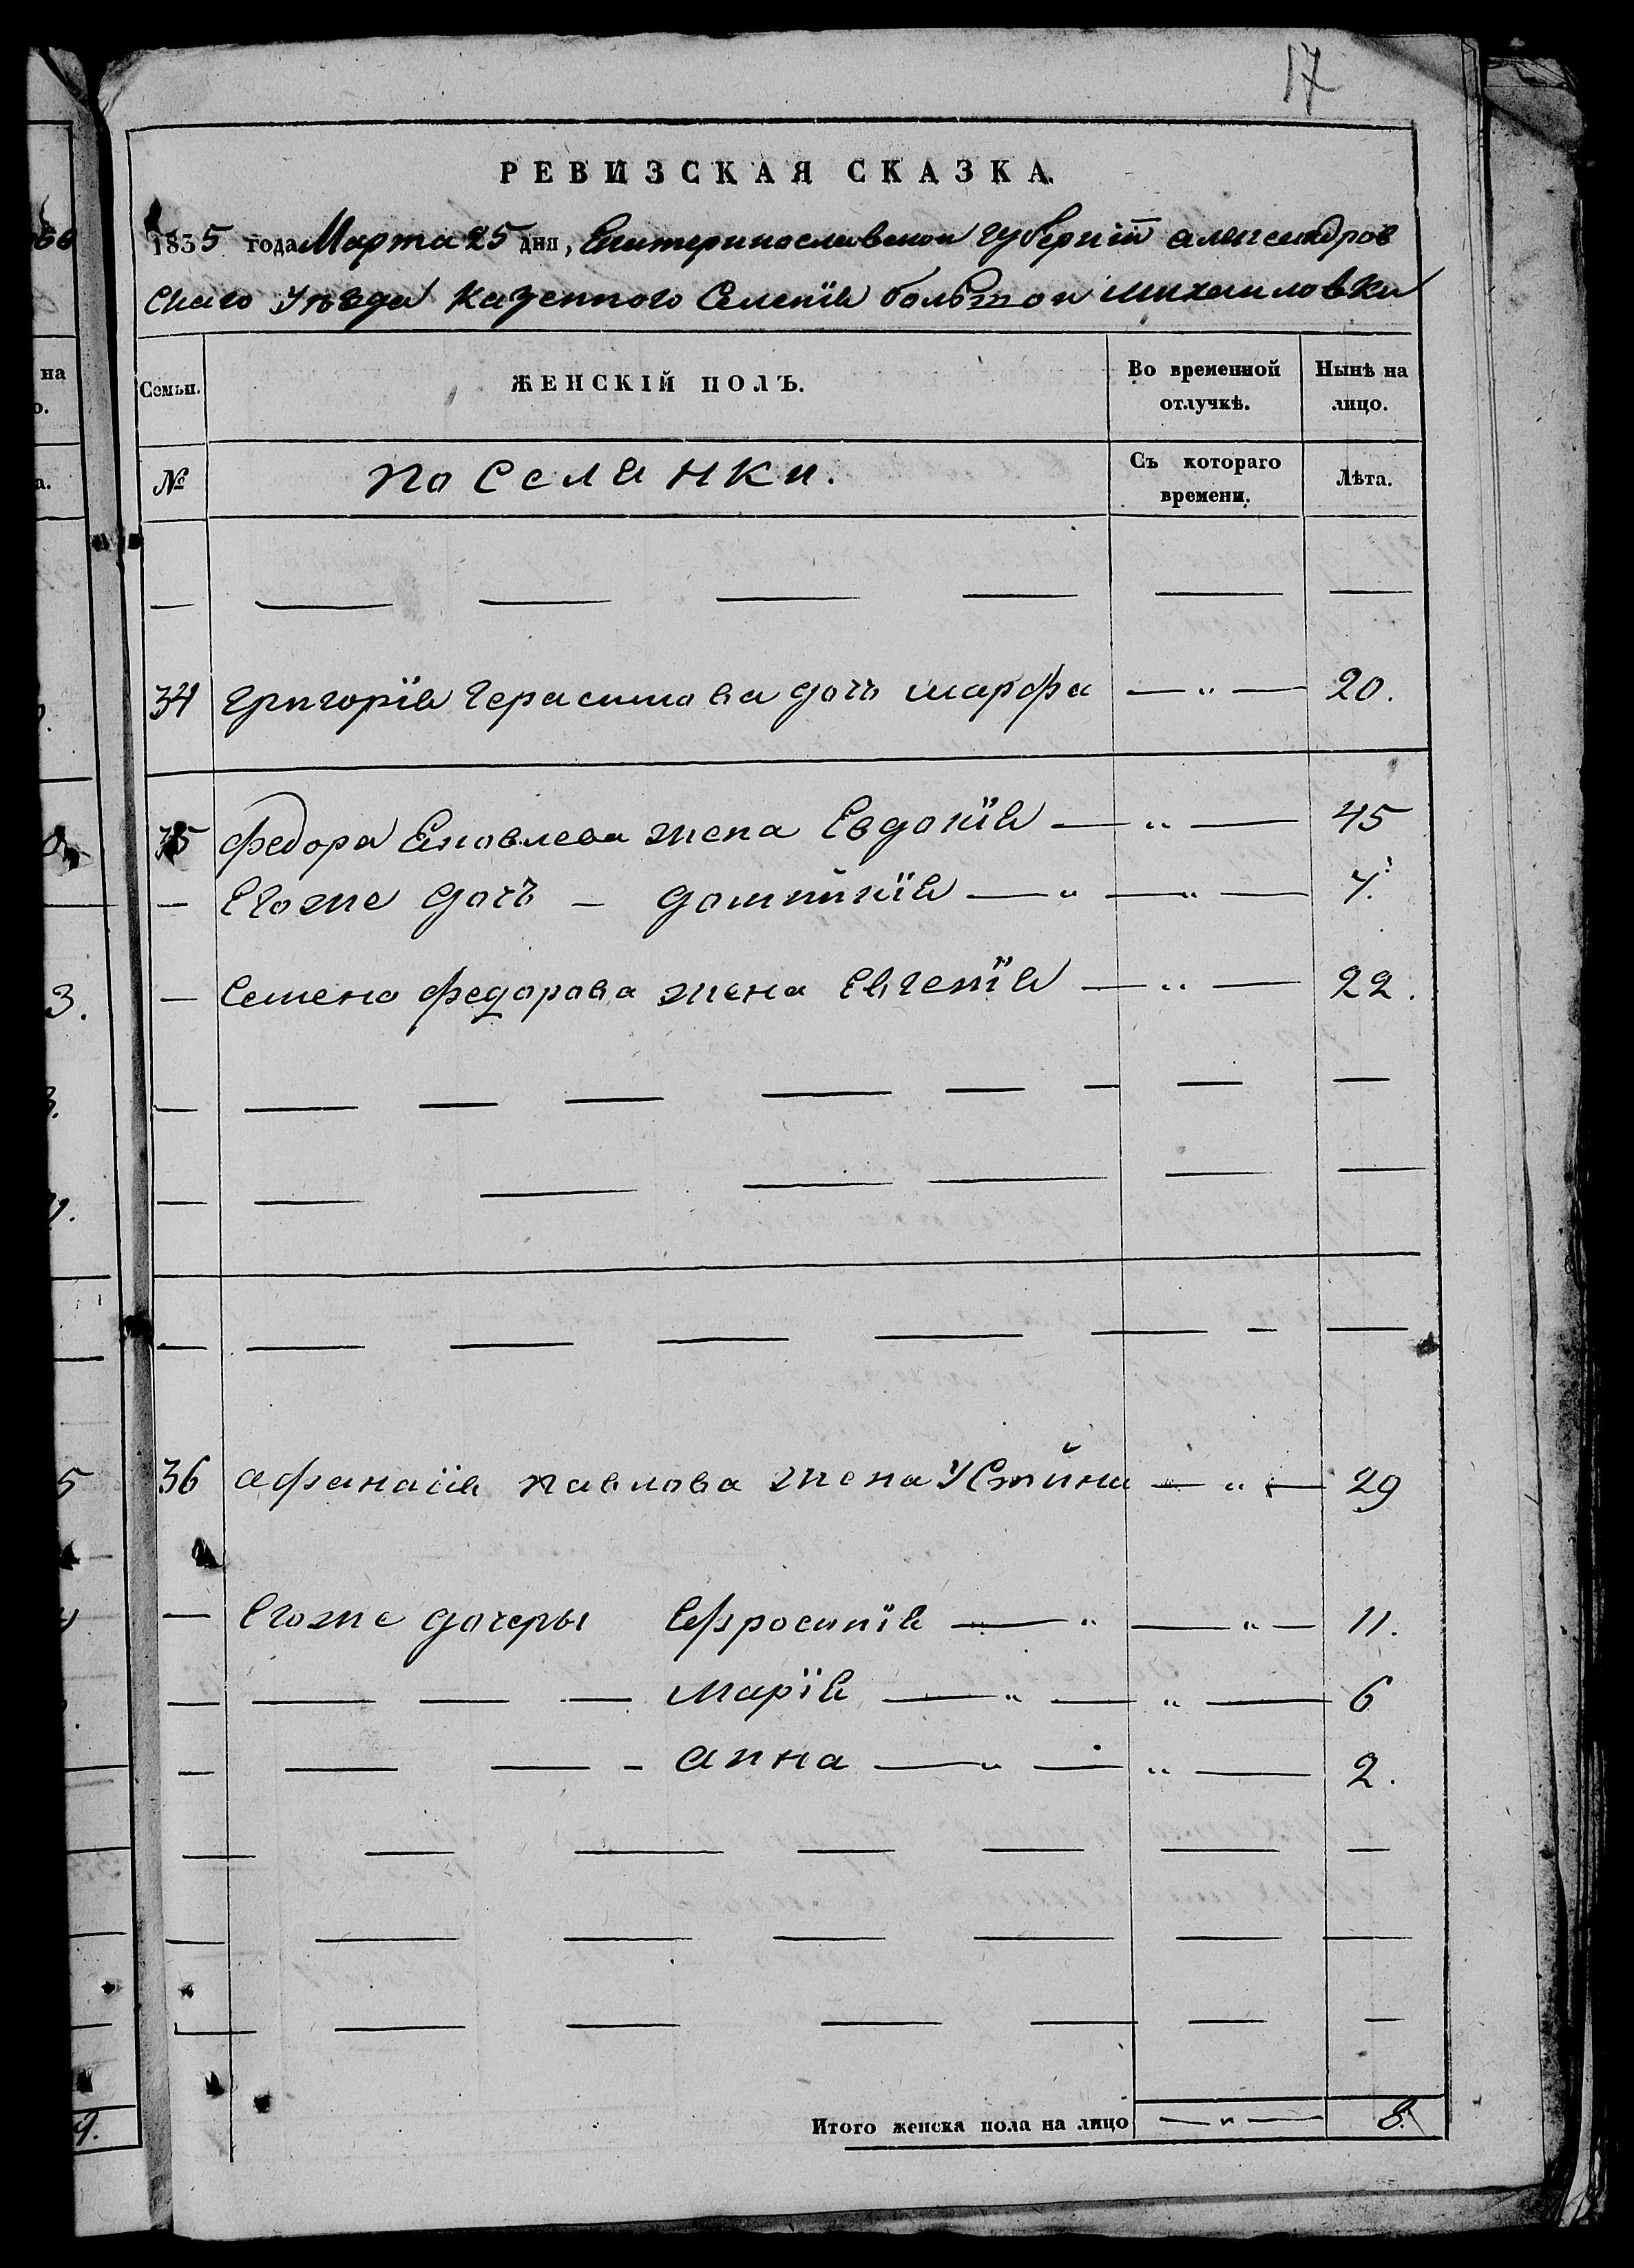 17
РЕВИЗСКАЯ СКАЗКА.
1835 года Марта 25 дня, Екатеринославской губерніи александров
скаго уезда казенного Селенія большой михаиловки
Семьи. ЖЕНСКІЙ ПОЛЪ. Во временной отлучкѣ. Нынѣ на лицо.
№ поселянки. Съ котораго времени. Лѣта.
34 григорія герасимова дочь марфа — " — 20.
35 федора Яковлева жена Евдокія — " — 45
— Егоже дочь — домникія — " — " — 7.
— Семена федорова жена Евгенія — " — 22.
36 афанасія павлова жена Устйна — " — 29
— Егоже дочеры Ефросинія — " — " — 11.
— — — — марія — " — " — 6
— — — - анна — " — " — 2.
Итого женска пола на лицо — " — 8.